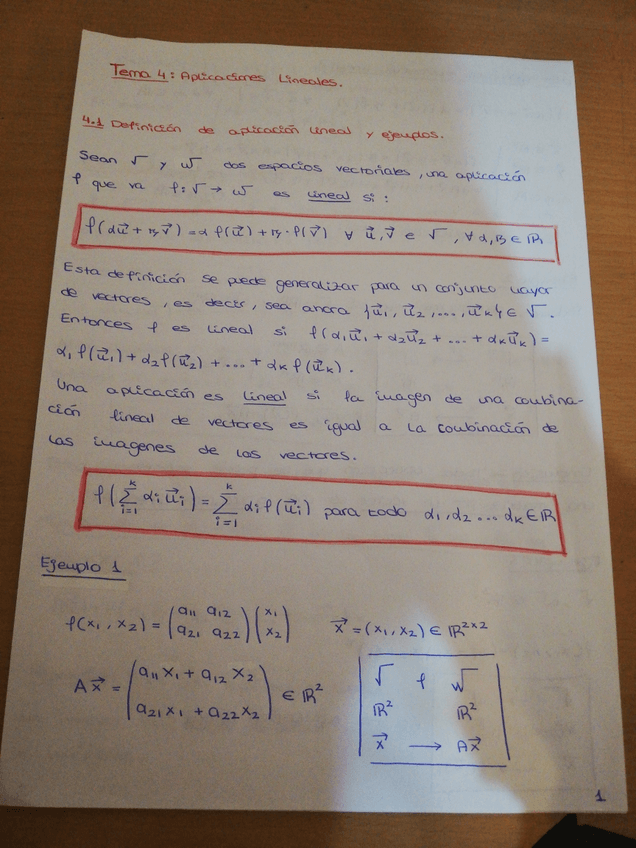 Tema 4: Aplicaciones Lineales.
4.1 Definición de aplicación lineal y ejemplos.
Sean V y W dos espacios vectoriales, una aplicación
f que va f: V → W es lineal si:
f(αu⃗ + βv⃗) = α f(u⃗) + β · f(v⃗) ∀ u⃗, v⃗ ∈ V, ∀ α, β ∈ ℝ
Esta definición se puede generalizar para un conjunto mayor
de vectores, es decir, sea ahora {u⃗₁, u⃗₂, ..., u⃗ₖ} ∈ V.
Entonces f es lineal si f(α₁u⃗₁ + α₂u⃗₂ + ... + αₖu⃗ₖ) =
α₁ f(u⃗₁) + α₂ f(u⃗₂) + ... + αₖ f(u⃗ₖ).
Una aplicación es lineal si la imagen de una combina-
ción lineal de vectores es igual a la combinación de
las imagenes de los vectores.
f(∑ᵢ₌₁ᵏ αᵢ u⃗ᵢ) = ∑ᵢ₌₁ᵏ αᵢ f(u⃗ᵢ) para todo α₁, α₂ ... αₖ ∈ ℝ
Ejemplo 1
f(x₁, x₂) = (a₁₁ a₁₂ a₂₁ a₂₂) (x₁ x₂) x⃗ = (x₁, x₂) ∈ ℝ²ˣ²
A x⃗ = (a₁₁ x₁ + a₁₂ x₂ a₂₁ x₁ + a₂₂ x₂) ∈ ℝ²
V f W
ℝ² ℝ²
x⃗ → A x⃗
1